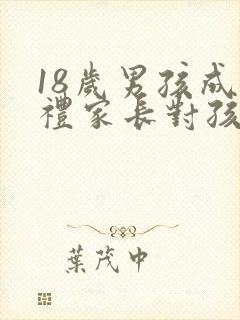 18歲男孩成
禮家長對孩
葉茂中